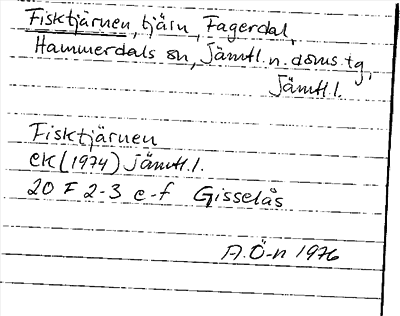 Fisktjärnen, tjärn, Fagerdal,
Hammerdals sn, Jämtl. n. doms. tg,
Jämtl. l.
Fisktjärnen
ek (1974) Jämtl. l.
20 F 2-3 e-f Gisselås
A.Ö-n 1976